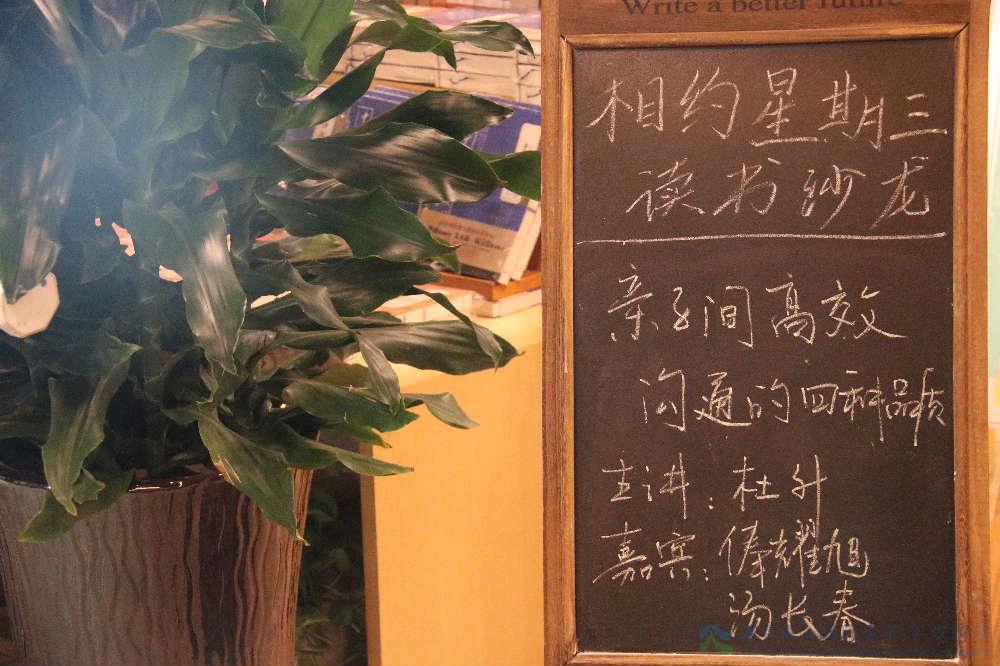 Write a better future
相约星期三
读书沙龙
亲子间高效
沟通的四种品质
主讲:杜升
嘉宾:俸耀旭
汤长春